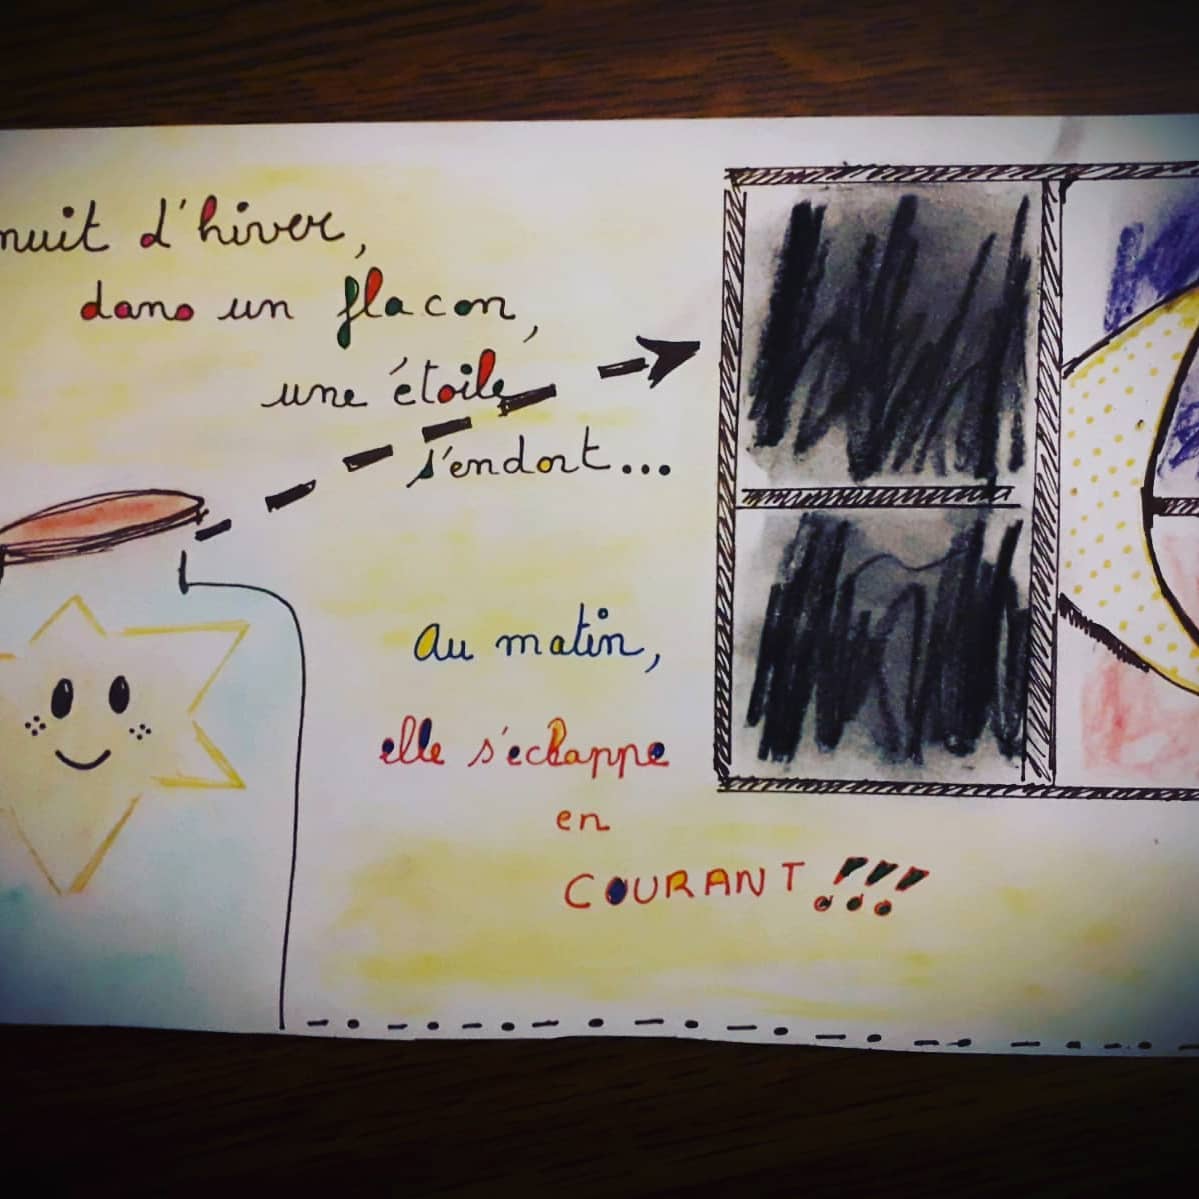 nuit d'hiver,
dans un flacon,
une étoile
s'endort...
Au matin,
elle s'echappe
en
COURANT !!!